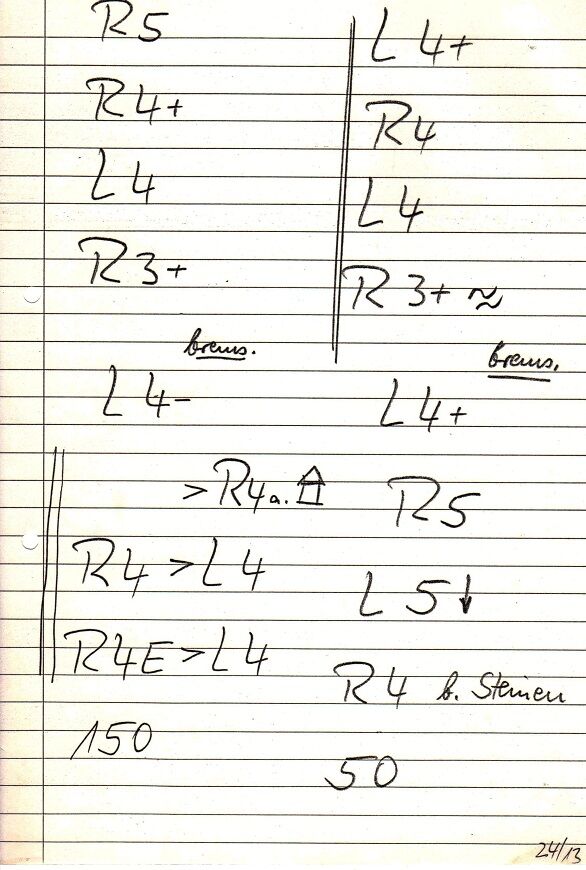 R5
R4+
L4
R3+
brems.
L4-
>R4a.
R4 >L4
R4E>L4
150
L4+
R4
L4
R3+ ≈
brems.
L4+
R5
L5↓
R4 b. Steinen
50
24/13